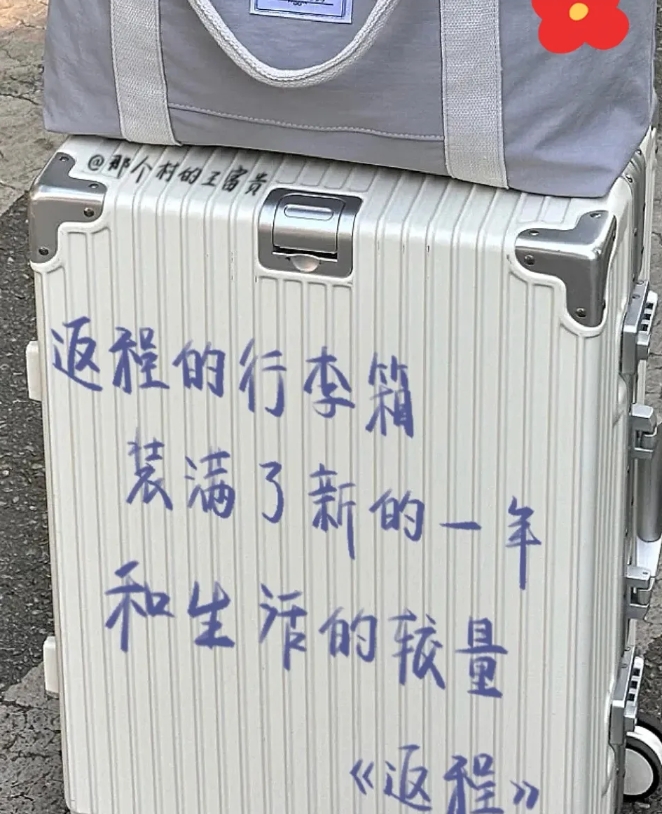 @那个村的王富贵
返程的行李箱
装满了新的一年
和生活的较量
《返程》